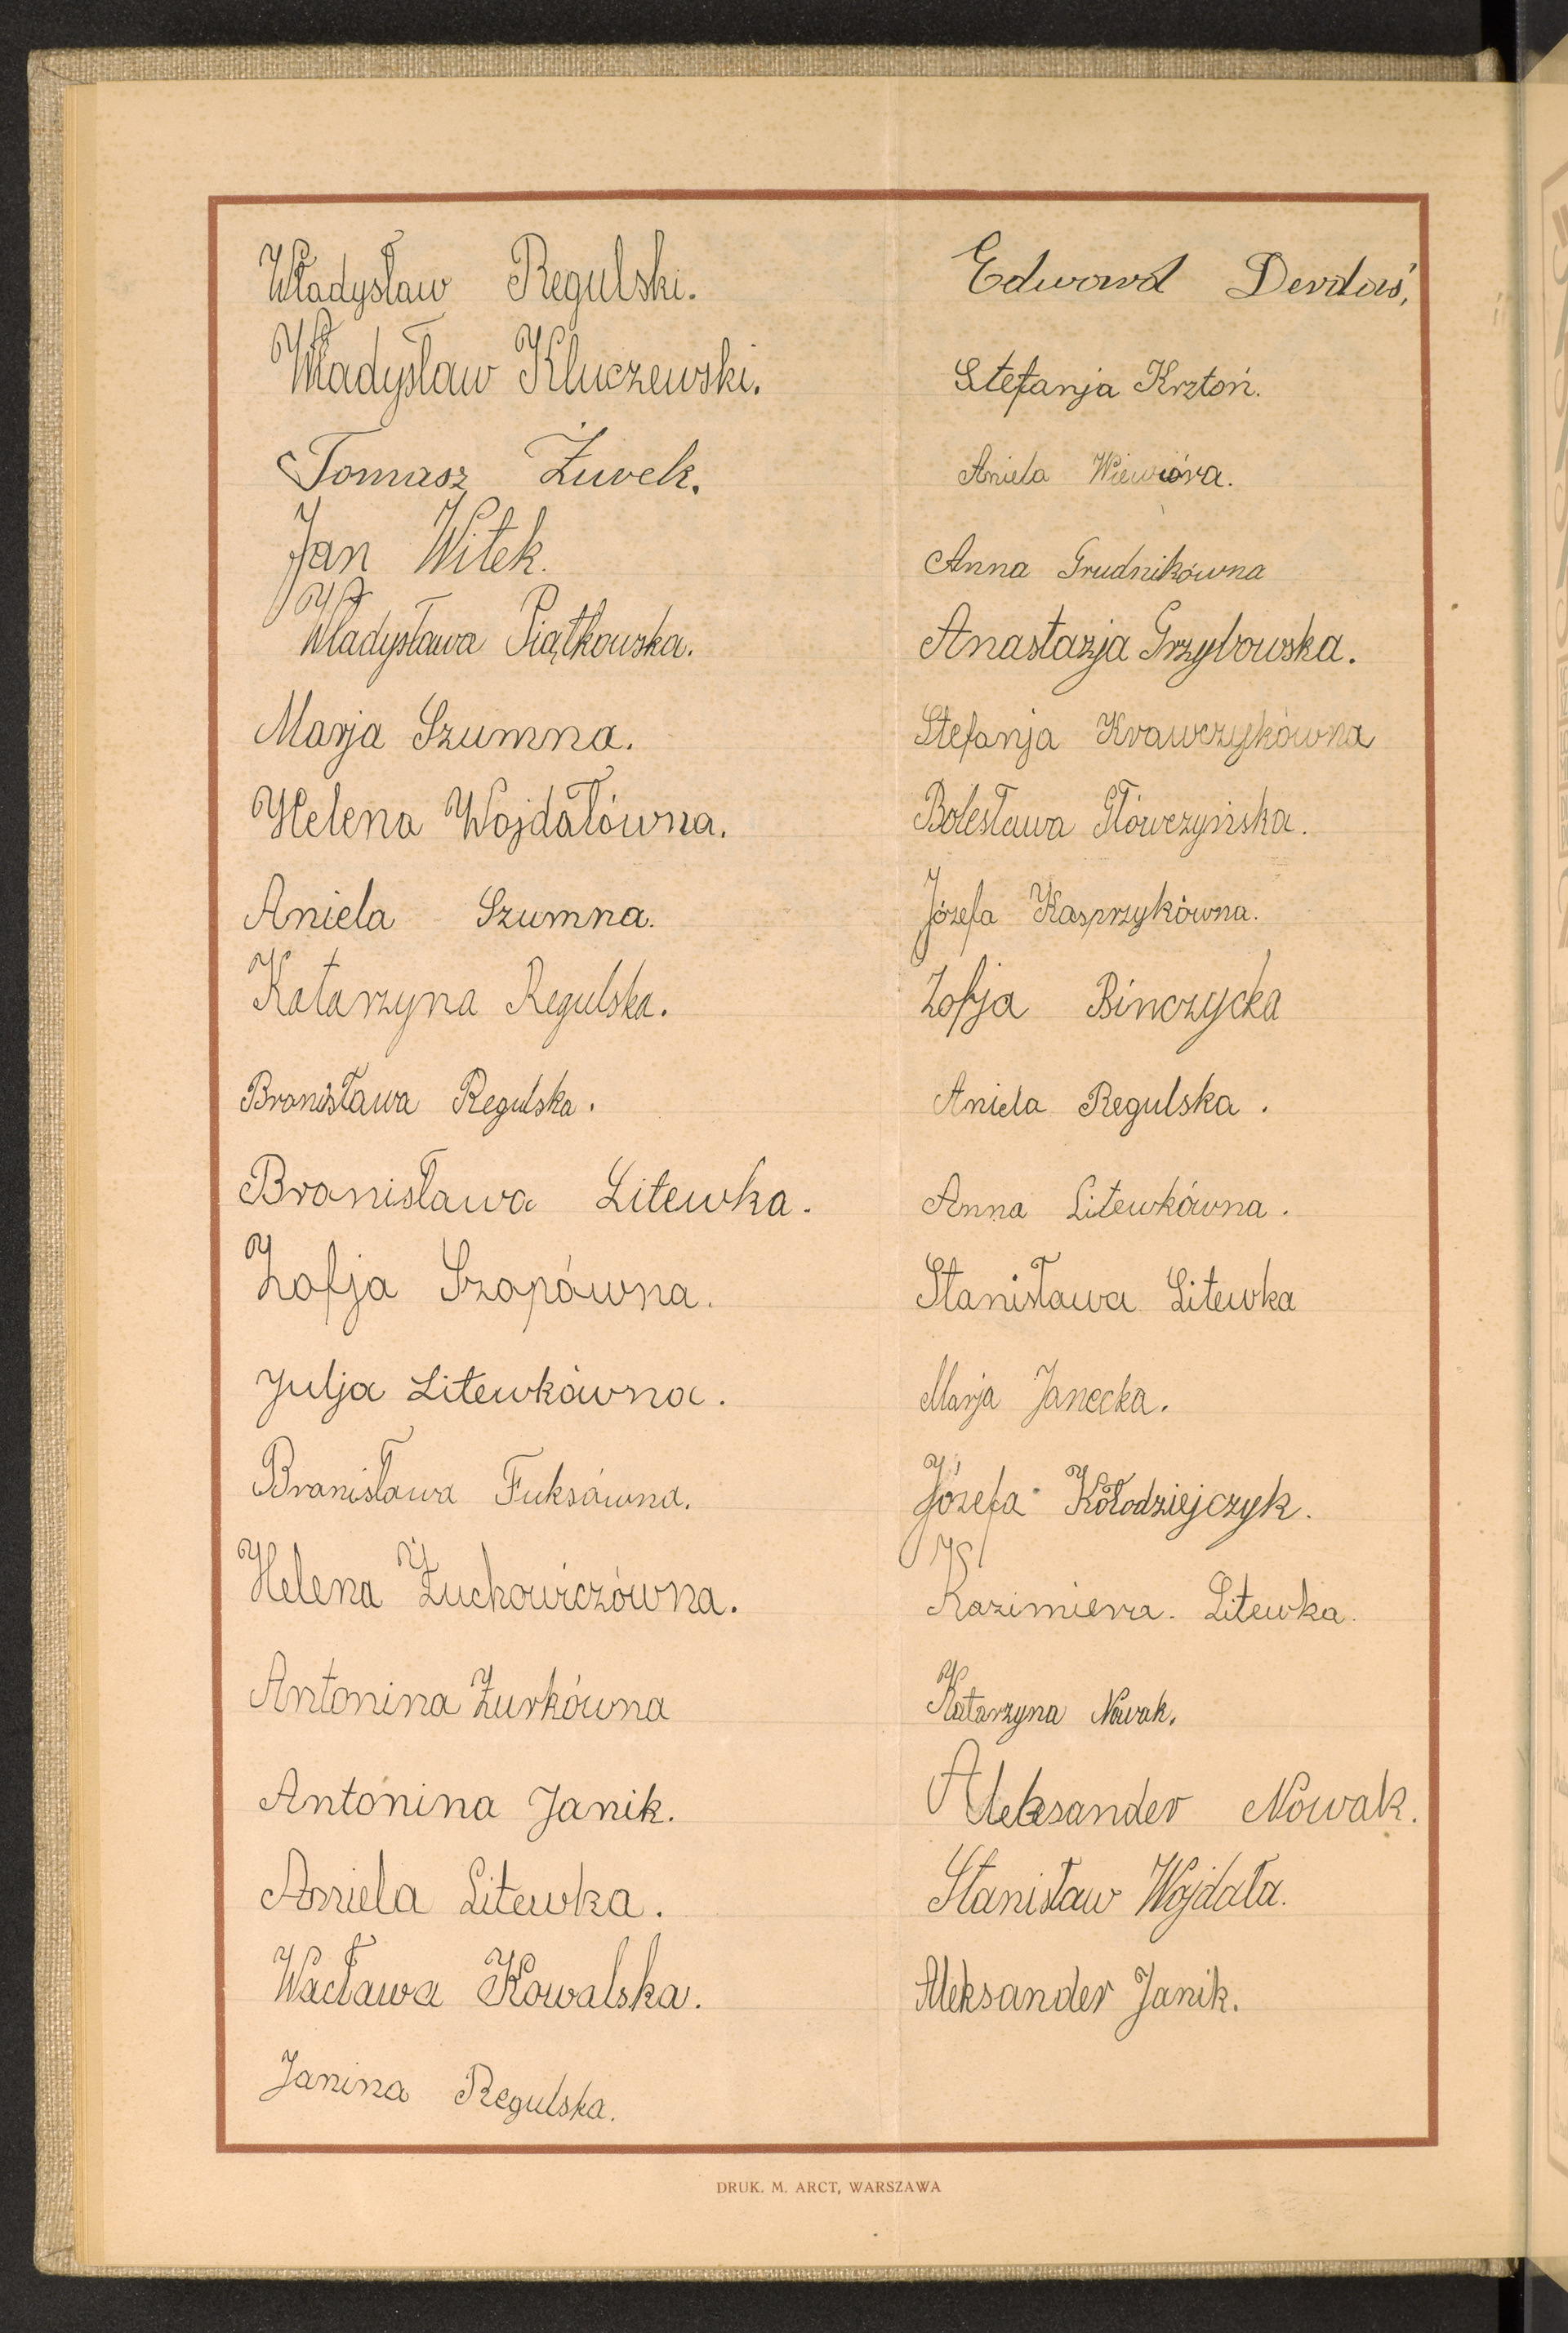 Władysław Regulski.
Władysław Kluczewski.
Tomasz Żurek.
Jan Witek.
Władysława Piątkowska.
Marja Szumna.
Helena Wojdałówna.
Aniela Szumna.
Katarzyna Regulska.
Bronisława Regulska.
Bronisława Litewka.
Zofja Szopówna.
Julja Litewkówna.
Bronisława Fuksówna.
Helena Żuchowiczówna.
Antonina Żurkówna
Antonina Janik.
Aniela Litewka.
Wacława Kowalska.
Janina Regulska.
Edward Derdaś,
Stefanja Krztoń.
Aniela Wiewióra.
Anna Grudnikówna
Anastazja Grzybowska.
Stefanja Krawczykówna
Bolesława Główczyńska.
Józefa Kasprzykówna.
Zofja Binczycka
Aniela Regulska.
Anna Litewkówna.
Stanisława Litewka
Marja Janecka.
Józefa Kołodziejczyk.
Kazimiera. Litewka.
Katarzyna Nowak.
Aleksander Nowak.
Stanisław Wojdała.
Aleksander Janik.
DRUK. M. ARCT, WARSZAWA